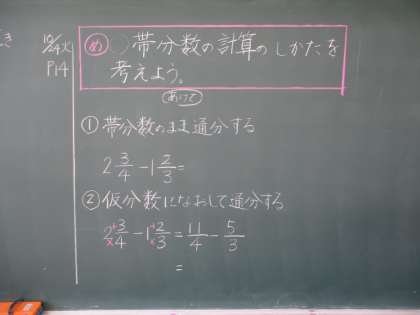 10/4火
P14
め 帯分数の計算のしかたを
考えよう。
①帯分数のまま通分する
2 3/4 - 1 2/3 =
②仮分数になおして通分する
2 3/4 - 1 2/3 = 11/4 - 5/3
=